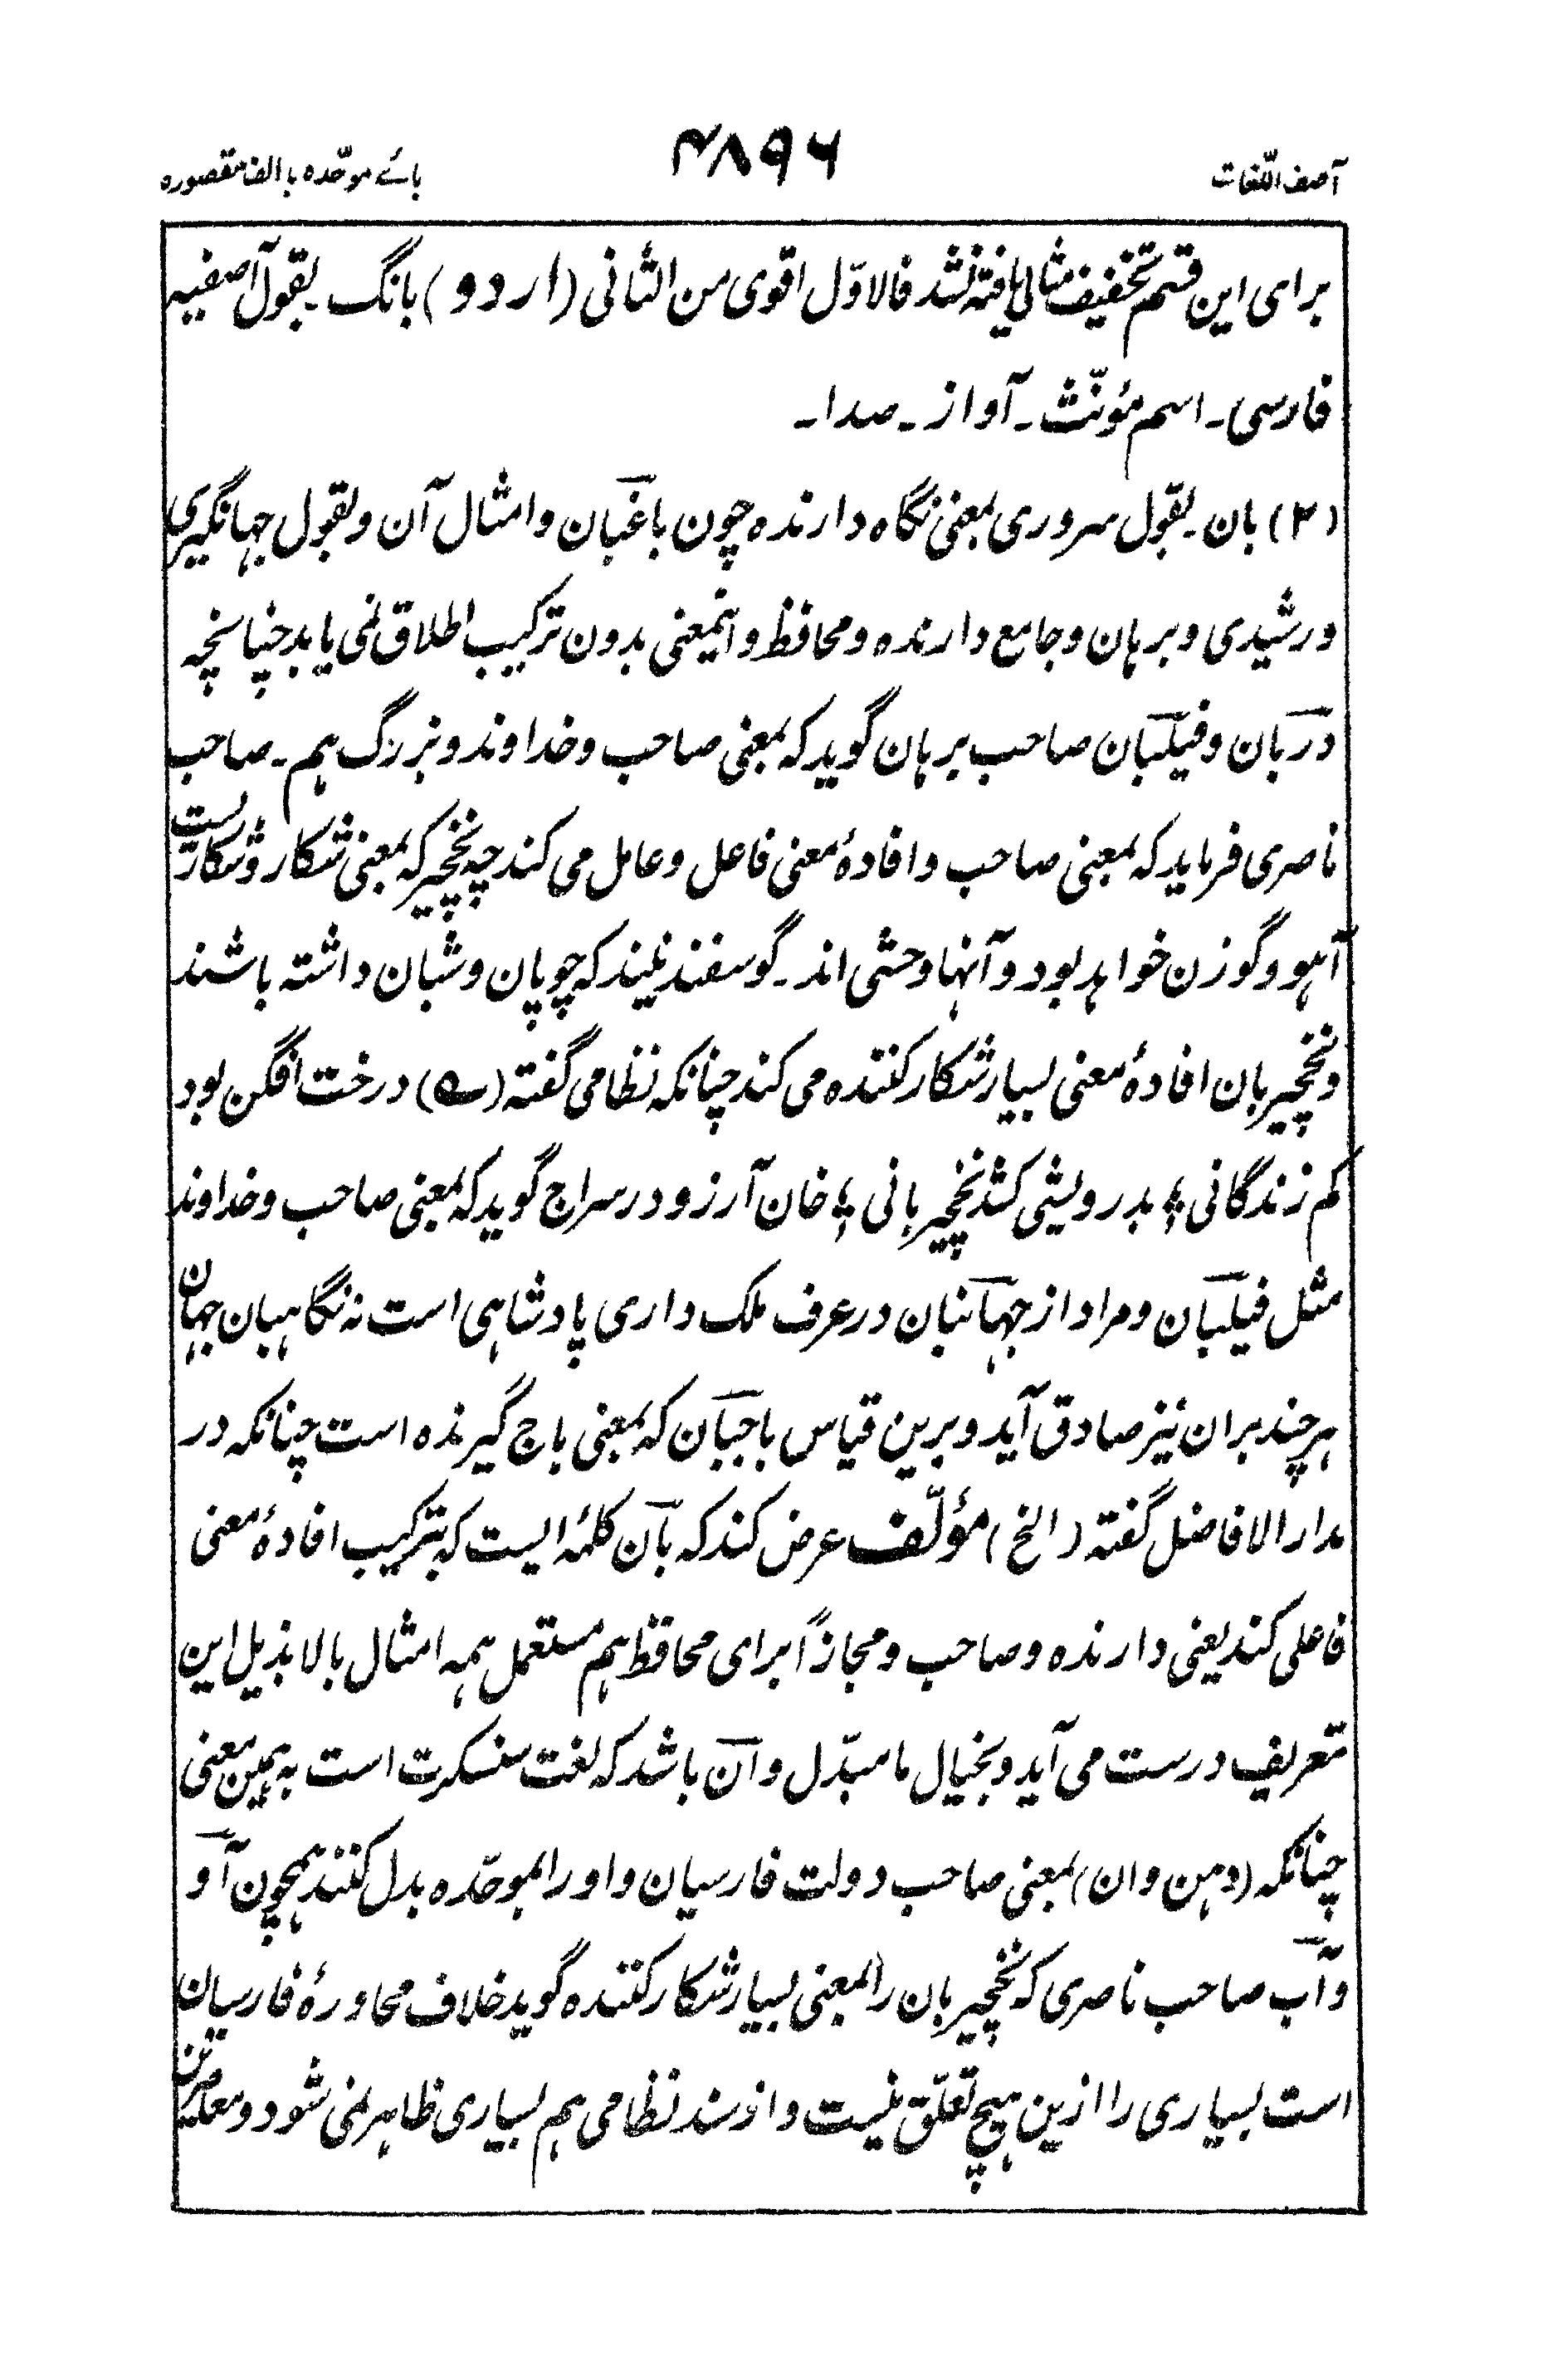 آصف اللّغات ۴۸۹۶ بائے موحّدہ با الف مقصورہ
برای این قسم تخفیف مثالی یافتہ نشد فالاوّل اقوی من الثانی (اردو) بانگ ۔ بقول آصفیہ
فارسی ۔ اسم مؤنّث ۔ آواز ۔ صدا ۔
(۲) بان ۔ بقول سروری بمعنی نگاہ دارندہ چون باغبان و امثال آن و بقول جہانگیری
و رشیدی و برہان و جامع دارندہ و محافظ و اینمعنی بدون ترکیب اطلاق نمی یابد چنانچہ
دربان و فیلبان صاحب برہان گوید کہ بمعنی صاحب و خداوند و بزرگ ہم ۔ صاحب
ناصری فرماید کہ بمعنی صاحب و افادۂ معنی فاعل و عامل می کند چہ نخچیر کہ بمعنی شکار و شکاریست
آہو و گوزن خواہد بود و آنہا وحشی اند ۔ گوسفند نیند کہ چوپان و شبان داشتہ باشند
و نخچیربان افادۂ معنی بسیار شکار کنندہ می کند چنانکہ نظامی گفتہ (ے) درخت افگن بود
کم زندگانی ؛ بدرویشی کشد نخچیربانی ؛ خان آرزو در سراج گوید کہ بمعنی صاحب و خداوند
مثل فیلبان و مراد از جہانبان در عرف ملک داری پادشاہی است نہ نگاہبان جہان
ہر چند بران نیز صادق آید و برین قیاس باجبان کہ بمعنی باج گیرندہ است چنانکہ در
مدار الافاضل گفتہ (الخ) مؤلّف عرض کند کہ بان کلمۂ ایست کہ بترکیب افادۂ معنی
فاعلی کند یعنی دارندہ و صاحب و مجازاً برای محافظ ہم مستعمل ہمہ امثال بالا بذیل این
تعریف درست می آید و بخیال ما مبدّل وان باشد کہ لغت سنسکرت است بہ ہمین معنی
چنانکہ (دہن وان) بمعنی صاحب دولت فارسیان واو را بموحّدہ بدل کنند ہمچون آو
و آب صاحب ناصری کہ نخچیربان را بمعنی بسیار شکار کنندہ گوید خلاف محاورۂ فارسیان
است بسیاری را ازین ہیچ تعلّق نیست و از سند نظامی ہم بسیاری ظاہر نمی شود و معاصرین